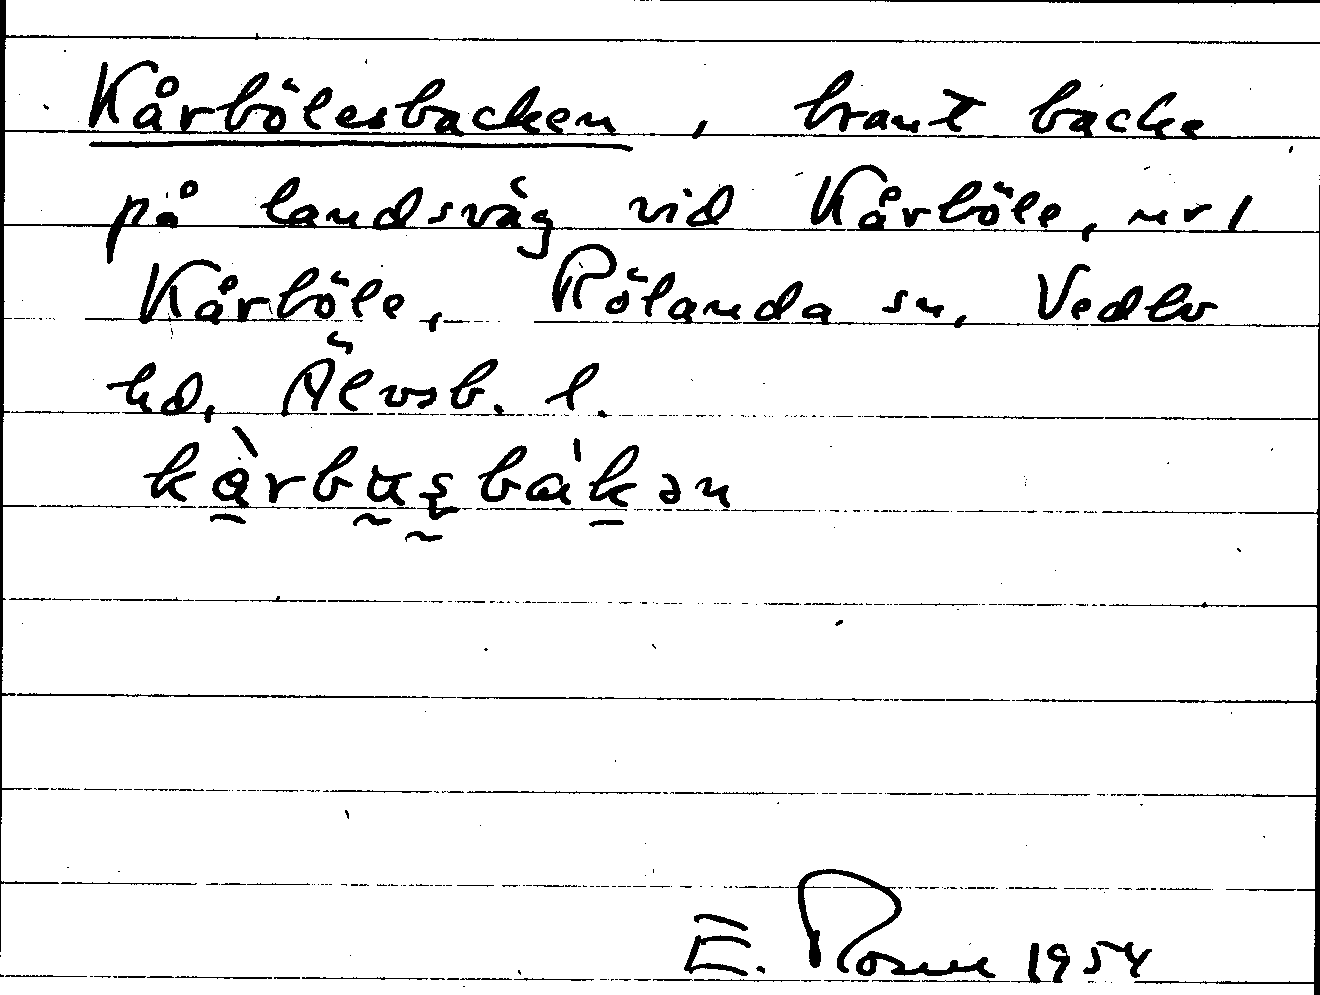 Kårbölesbacken, brant backe
på landsväg vid Kårböle, nr 1
Kårböle, Rölanda sn, Vedbo
hd, Älvsb. l.
E. Rosell 1954